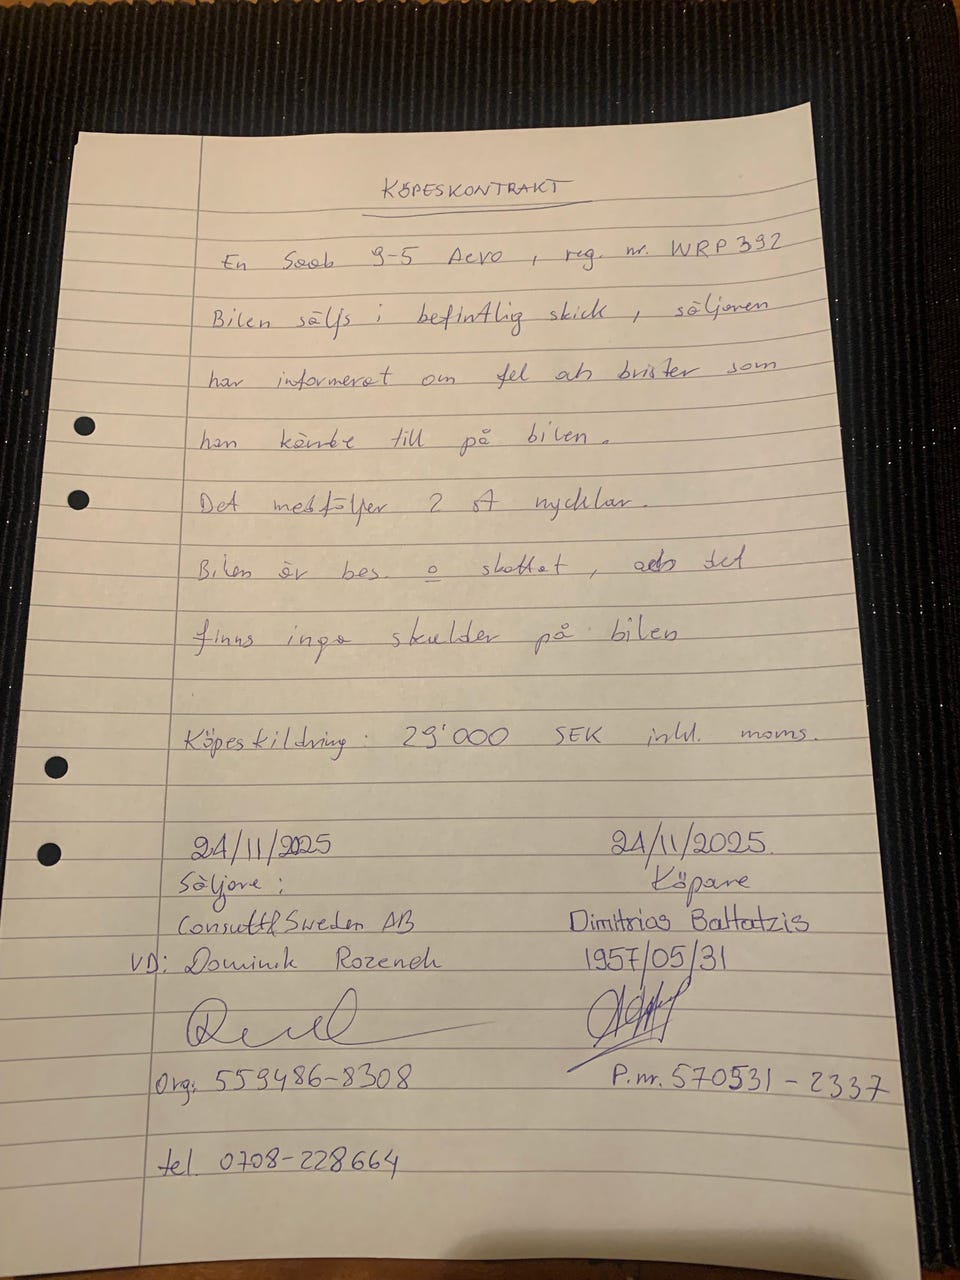 KÖPESKONTRAKT
En Saab 9-5 Aero, reg. nr. WRP392
Bilen säljs i befintlig skick, säljaren
har informerat om fel och brister som
han kände till på bilen.
Det medföljer 2 st nycklar.
Bilen är bes. o skattat, och det
finns inga skulder på bilen
Köpeskildring: 29'000 SEK inkl. moms.
24/11/2025 24/11/2025
Säljare: Köpare
Sweden AB Dimitrios Baltatzis
VD: Dominik 1957/05/31
Org: 559486-8308 P.nr. 570531-2337
tel. 0708-228664